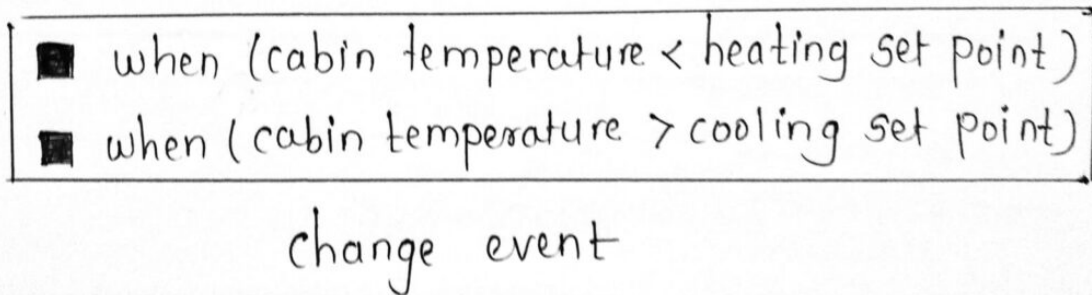 ■ when (cabin temperature < heating set point)
■ when (cabin temperature > cooling set point)
change event